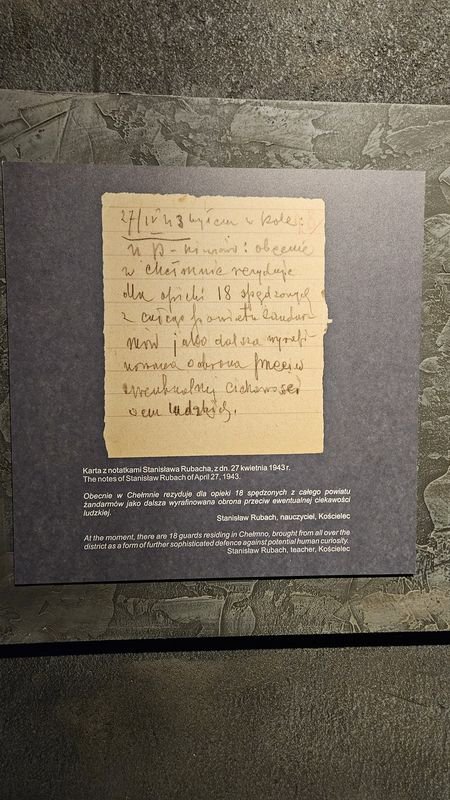 27/IV 43 byłem w Kole:
u p-
obecnie
w chełmnie rezyduje
dla opieki 18 spędzonych
z całego powiatu żandar
mów jako dalsza wyrafi
nowana ochrona przeciw
ewentualnej ciekawości
ocz ludzkich.
Karta z notatkami Stanisława Rubacha, z dn. 27 kwietnia 1943 r.
The notes of Stanisław Rubach of April 27, 1943.
Obecnie w Chełmnie rezyduje dla opieki 18 spędzonych z całego powiatu
żandarmów jako dalsza wyrafinowana obrona przeciw ewentualnej ciekawości
ludzkiej.
Stanisław Rubach, nauczyciel, Kościelec
At the moment, there are 18 guards residing in Chełmno, brought from all over the
district as a form of further sophisticated defence against potential human curiosity.
Stanisław Rubach, teacher, Kościelec